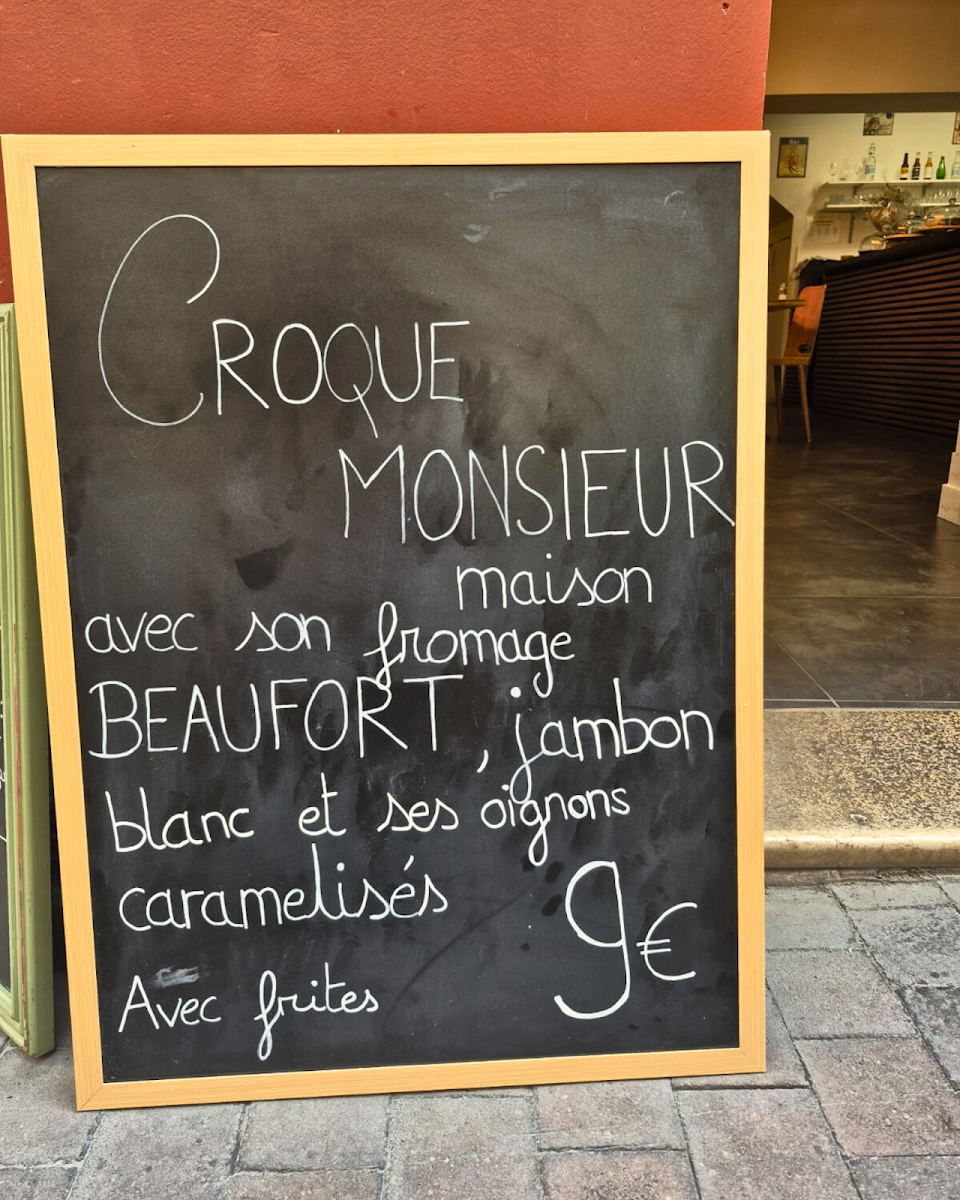 CROQUE
MONSIEUR
maison
avec son fromage
BEAUFORT, jambon
blanc et ses oignons
caramelisés
9€
Avec frites